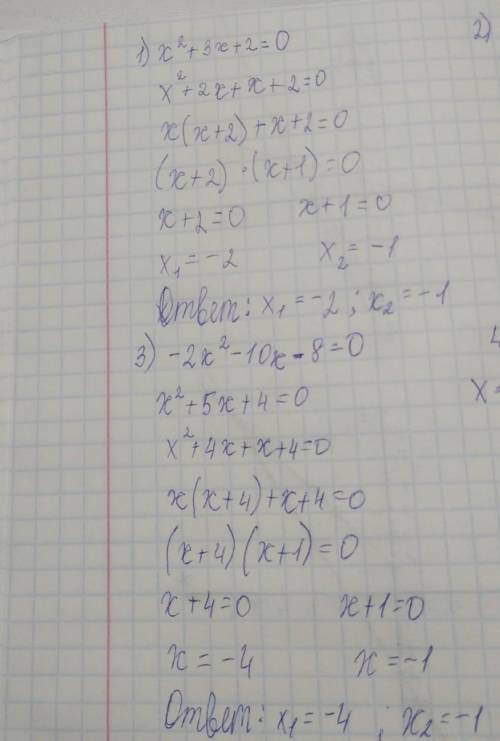 1) x² + 3x + 2 = 0
x² + 2x + x + 2 = 0
x(x+2) + x + 2 = 0
(x+2) · (x+1) = 0
x + 2 = 0 x + 1 = 0
x₁ = -2 x₂ = -1
Ответ: x₁ = -2 ; x₂ = -1
3) -2x² - 10x - 8 = 0
x² + 5x + 4 = 0
x² + 4x + x + 4 = 0
x(x+4) + x + 4 = 0
(x+4)(x+1) = 0
x + 4 = 0 x + 1 = 0
x = -4 x = -1
Ответ: x₁ = -4 ; x₂ = -1
2)
4
x =